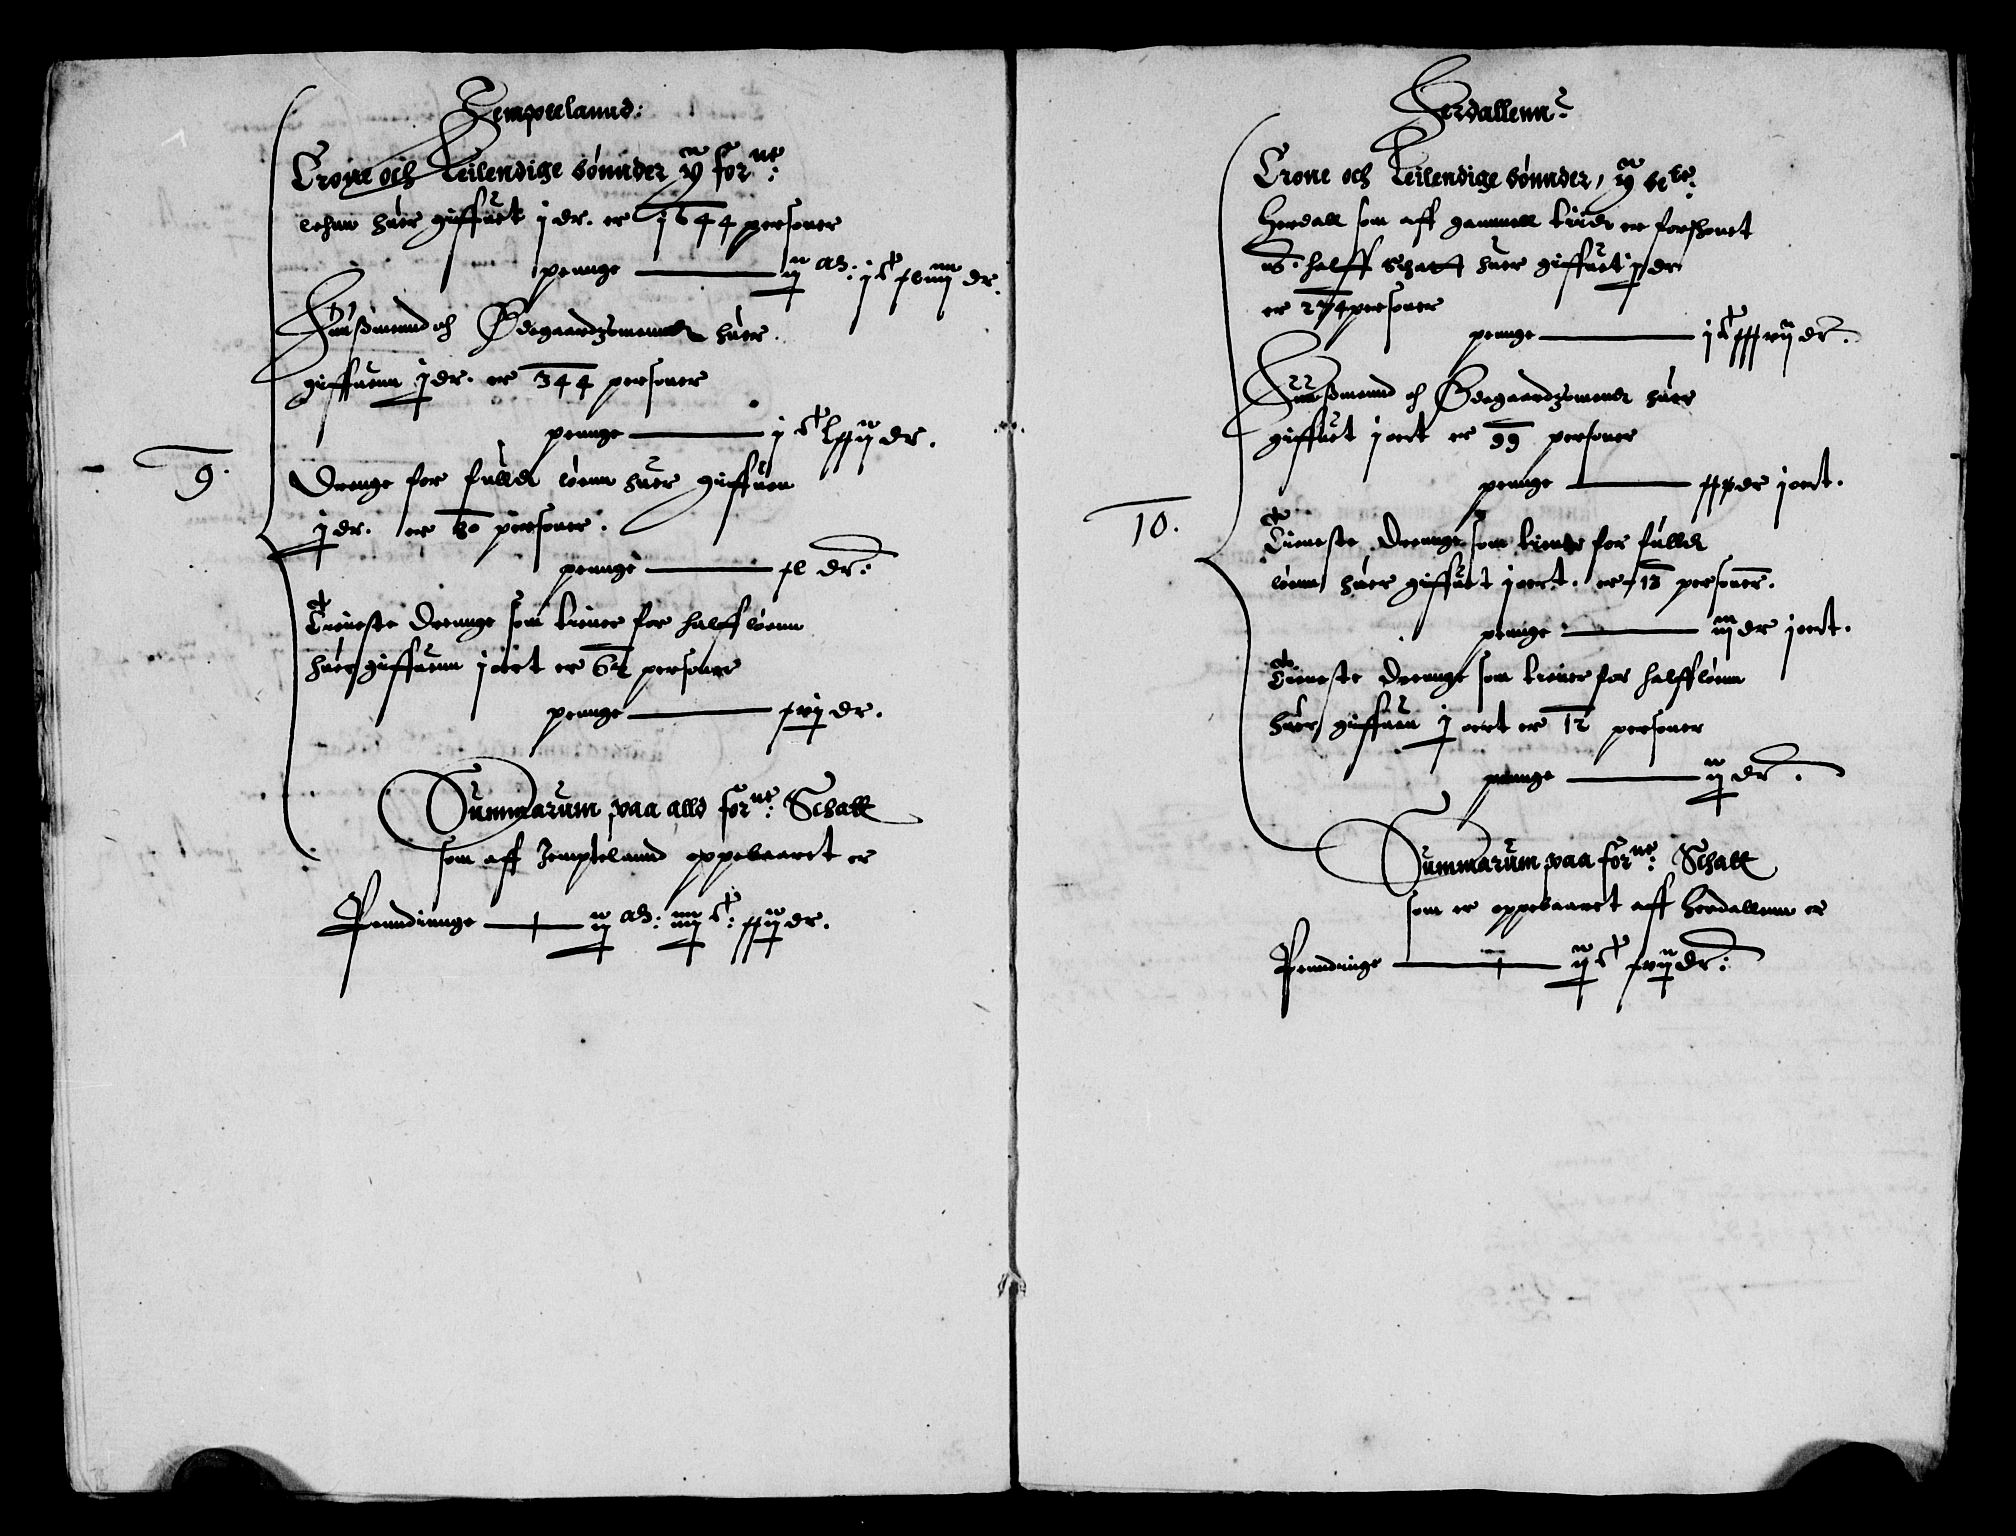 Jempteelannd:
Crone och Leilendige bónnder ij for.ne:
lehnn húer giffuet j dr. er 1644 personer
pennge — ij m: j c xliiij dr.
Húußmennd och Ødegaardzmennd húer
giffuenn j dr. er 344 personer
pennge — j c lxxij dr.
9.
Drenge for fulldt lónn húer giffuen
j dr. er 80 personer.
pennge — xl dr:
Tieneste Drennge som tiener for halff lóenn
húer giffuenn j oert er 62 personer
pennge — xvj dr.
Summarum paa alld for.ne: Schatt
som aff Jempteland oppebaaret er
Penndinnge — ij m: iiij c: xxij dr.
Herdallenn:
Crone och Leilendige bónnder, ij be.te:
Herdall som aff gammell tiidt er forskonet
halff Schatt húer giffuet j dr
er 274 personer
pennge — j c xxxvij dr.
Húußmennd och Ødegaardzmendt húer
giffuet j oert er 99 personer
pennge — xxv dr j oert.
10.
Tieneste Drennge som tiener for fulldt
lónn húer giffuet j oert. er 13 personer.
pennge — iij dr j oert.
Tieneste Drennge som tiener for halff lónn
húer giffuen j oert er 12 personer
pennge — ij dr.
Summarum paa for.ne: Schatt
som er oppebaaret aff Herdallenn er
Penndinge — ij c xvij dr: